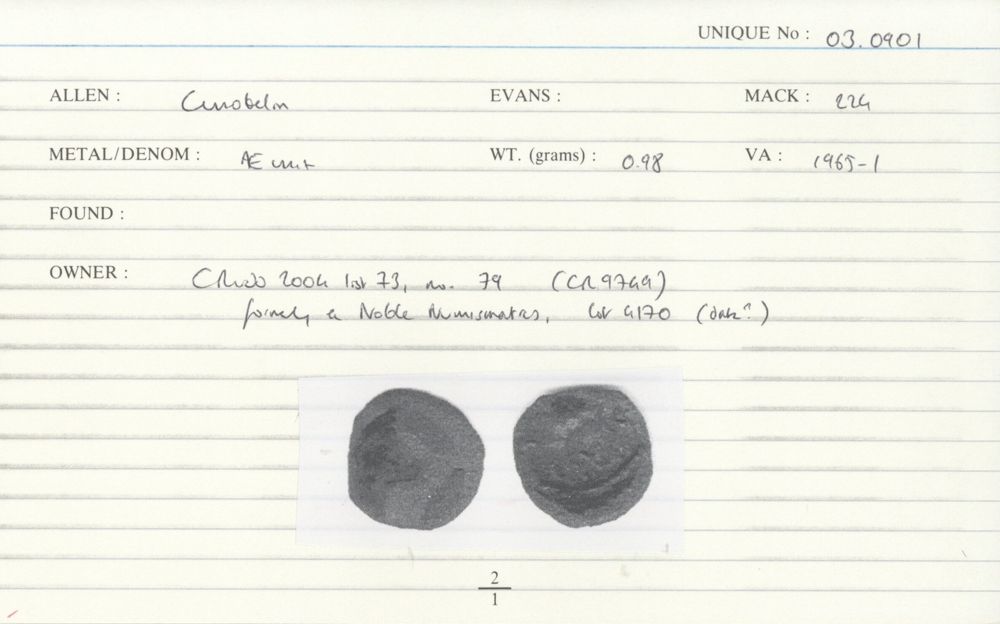 UNIQUE No : 03.0901
ALLEN : Cunobelin EVANS : MACK : 224
METAL/DENOM : Æ unit WT. (grams) : 0.98 VA : 1965-1
FOUND :
OWNER : 2004 list 73, no. 79 (CR9749)
formerly Noble Numismatics, lot 4170 (date?)
2
1